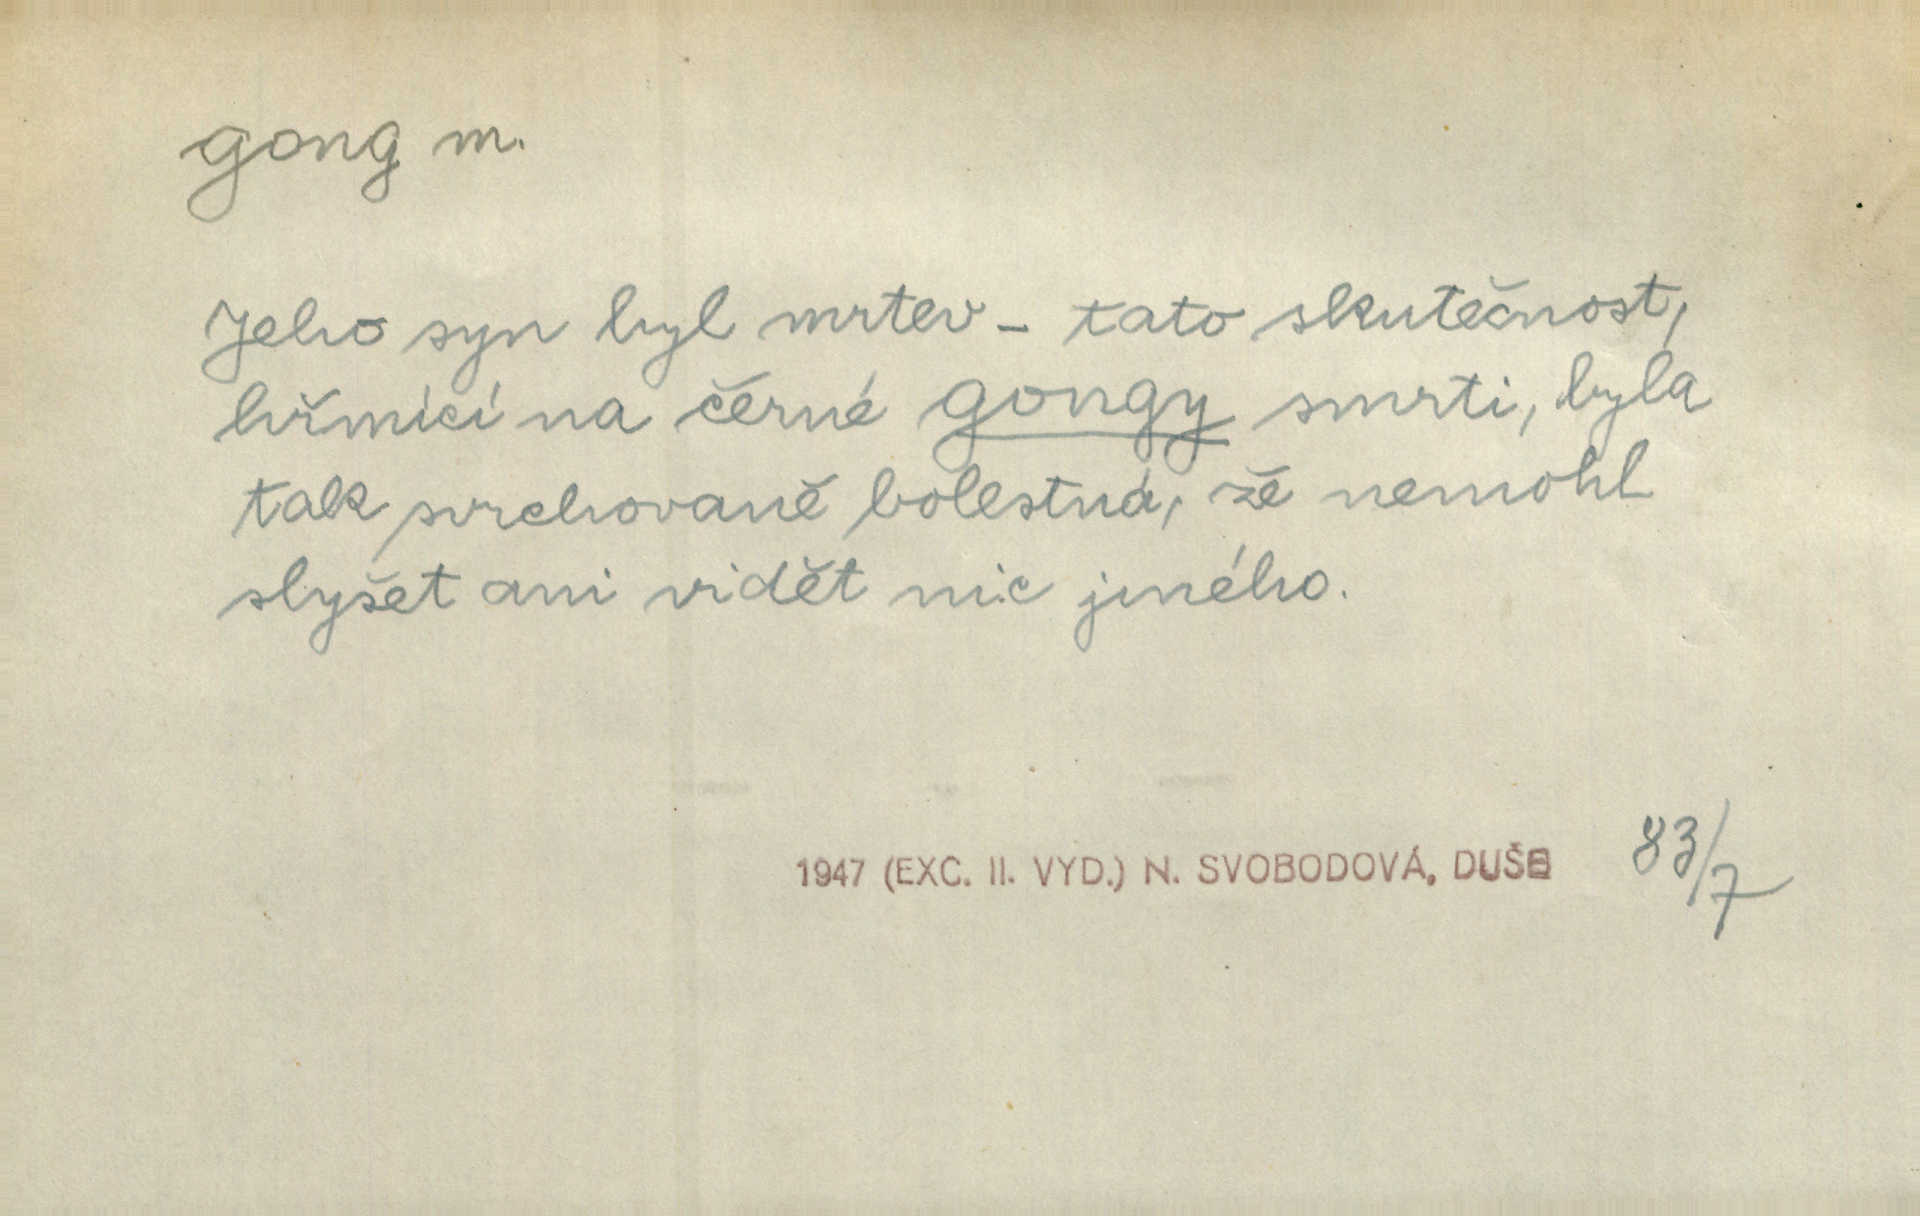 gong m.
Jeho syn byl mrtev – tato skutečnost,
hřmící na černé gongy smrti, byla
tak svrchovaně bolestná, že nemohl
slyšet ani vidět nic jiného.
1947 (EXC. II. VYD.) N. SVOBODOVÁ, DUŠE 83/7